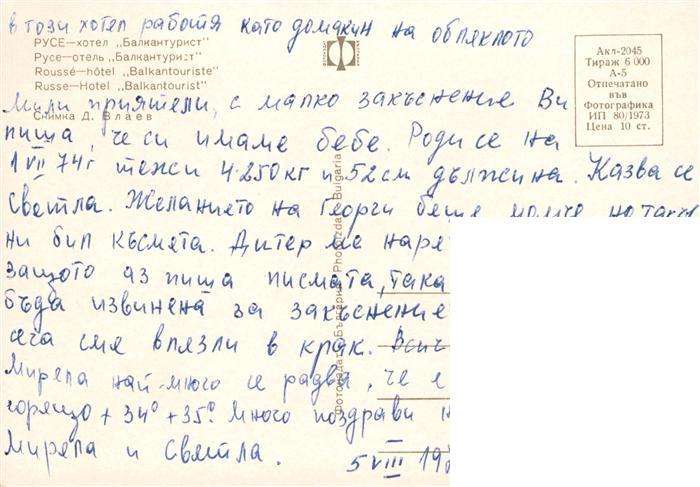 в този хотел работя като домакин на облеклото
РУСЕ—хотел „Балкантурист"
Русе—отель „Балкантурист"
Roussé—hôtel „Balkantouriste"
Russe—Hotel „Balkantourist"
Снимка Д. Влаев
Акл-2045
Тираж 6 000
А-5
Отпечатано
във
Фотографика
ИП 80/1973
Цена 10 ст.
Мили приятели, с малко закъснение Ви
пиша, че си имаме бебе. Роди се на
1 VII 74г тежи 4.250кг и 52см дължина. Казва се
Светла. Желанието на Георги беше момче но такъв
ни бил късмета. Дитер ме наря
защото аз пиша писмата, така
бъда извинена за закъснение
сега сме влязли в крак. Всич
Мирела най-много се радва, че е
горещо + 34° + 35°. Много поздрави н
Мирела и Светла.
5 VIII 19
Фотоиздат България Photoizdat Bulgaria